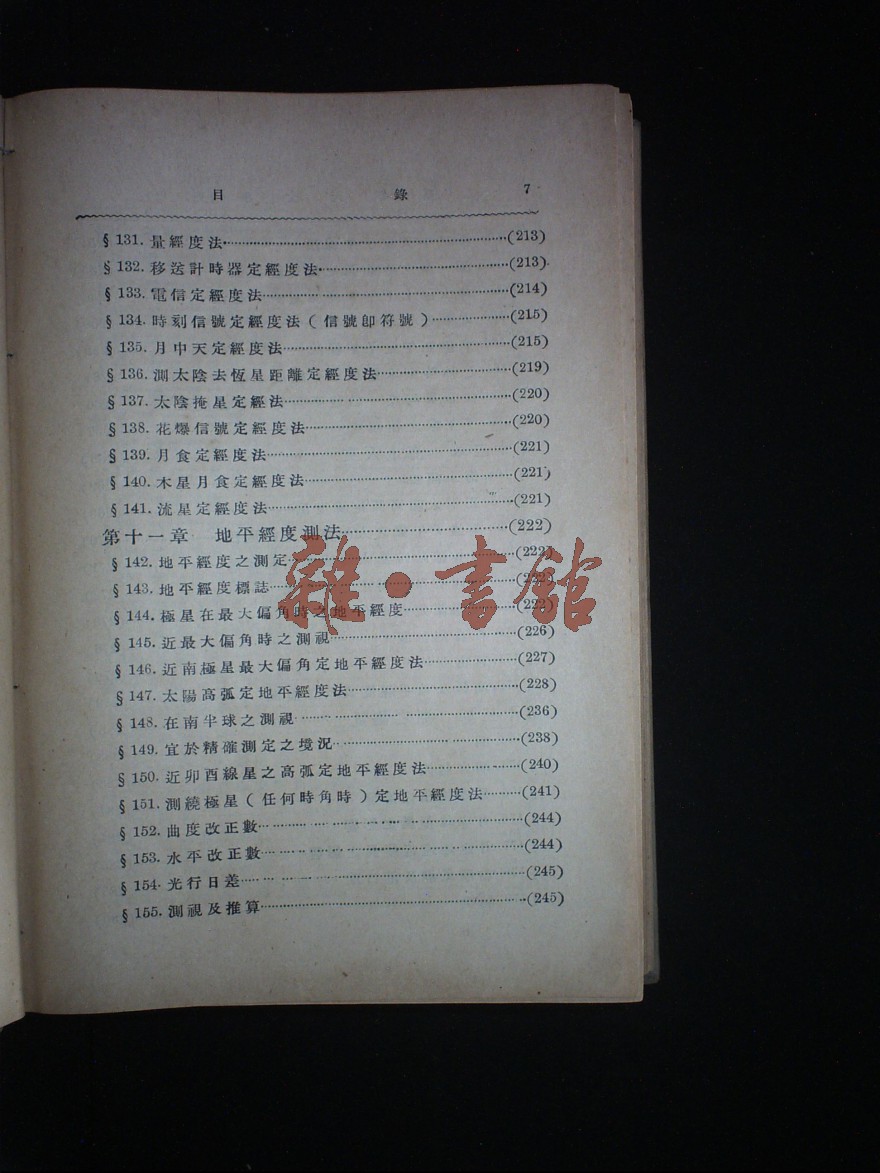 目錄 7
§ 131. 量經度法 (213)
§ 132. 移送計時器定經度法 (213)
§ 133. 電信定經度法 (214)
§ 134. 時刻信號定經度法（信號卽符號） (215)
§ 135. 月中天定經度法 (215)
§ 136. 測太陰去恆星距離定經度法 (219)
§ 137. 太陰掩星定經法 (220)
§ 138. 花爆信號定經度法 (220)
§ 139. 月食定經度法 (221)
§ 140. 木星月食定經度法 (221)
§ 141. 流星定經度法 (221)
第十一章 地平經度測法 (222)
§ 142. 地平經度之測定 (222)
§ 143. 地平經度標誌
§ 144. 極星在最大偏角時之地平經度 (222)
§ 145. 近最大偏角時之測視 (226)
§ 146. 近南極星最大偏角定地平經度法 (227)
§ 147. 太陽高弧定地平經度法 (228)
§ 148. 在南半球之測視 (236)
§ 149. 宜於精確測定之境況 (238)
§ 150. 近卯酉線星之高弧定地平經度法 (240)
§ 151. 測繞極星（任何時角時）定地平經度法 (241)
§ 152. 曲度改正數 (244)
§ 153. 水平改正數 (244)
§ 154. 光行日差 (245)
§ 155. 測視及推算 (245)
雜·書館